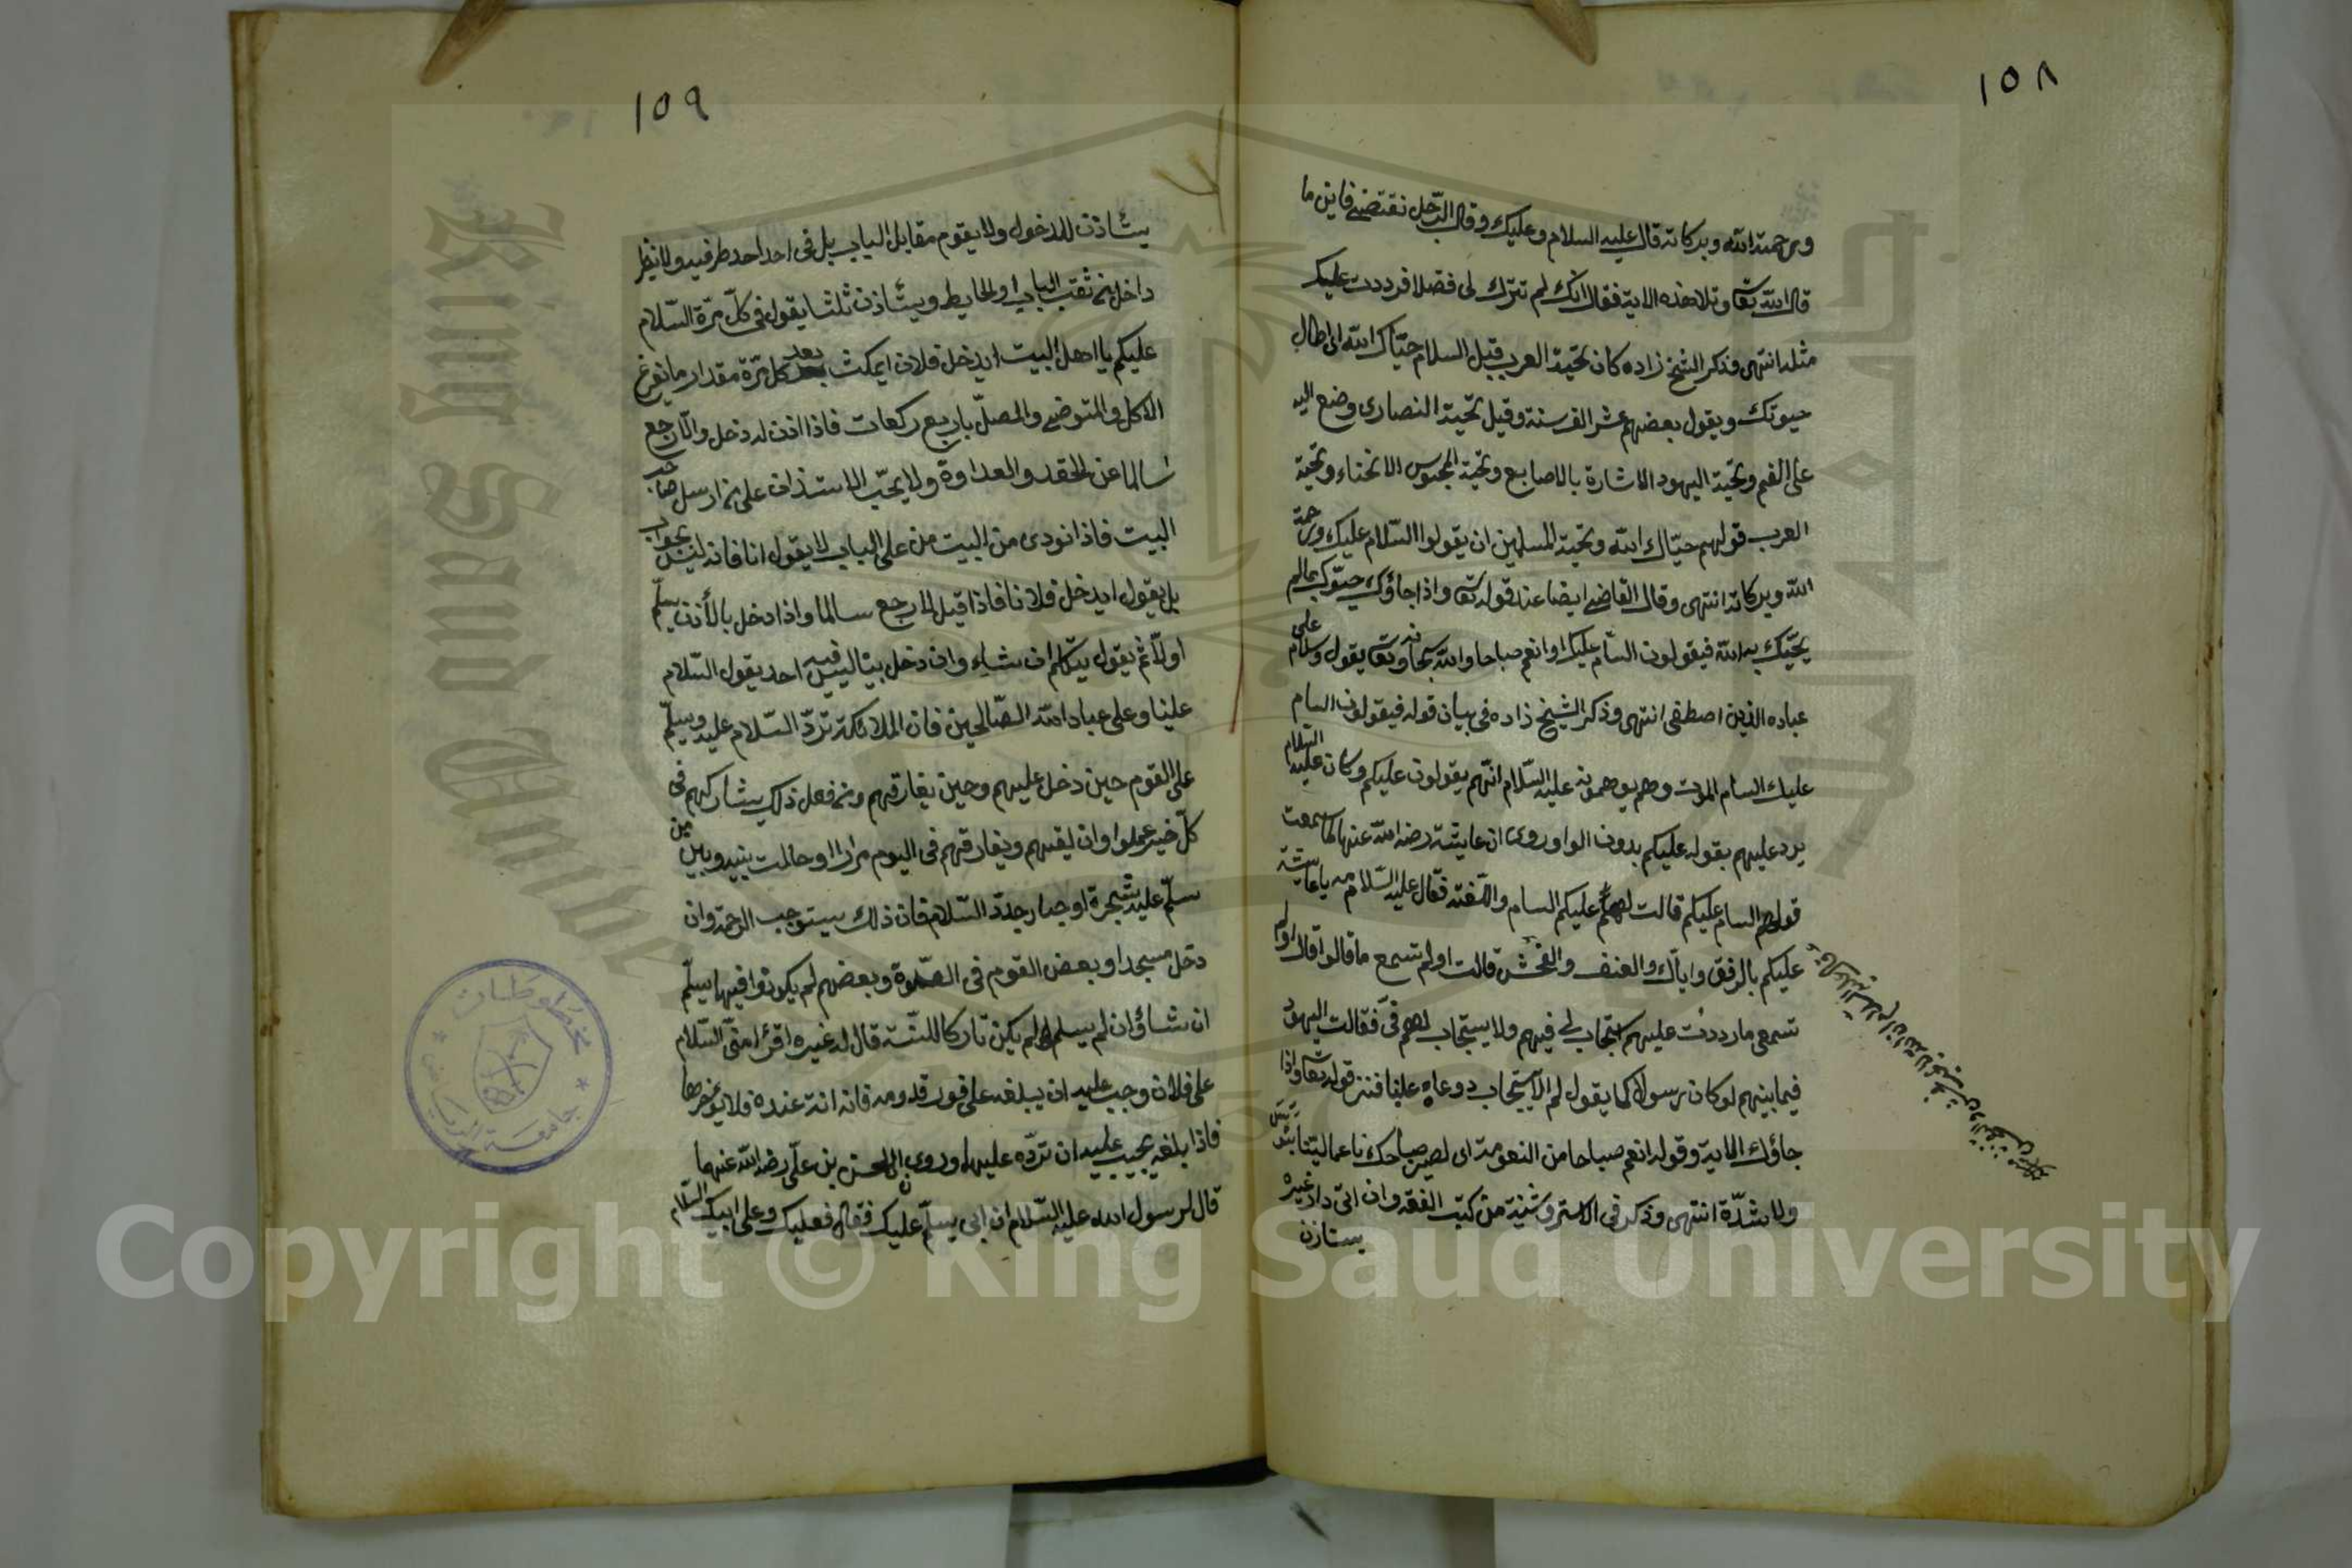 ١٥٨
ورحمة الله وبركاته قال عليه السلام وعليك وقال الرّجل نقتضى فاين ما
قال الله تعا وتلا هذه الاية فقال انّك لم تترك لى فضلا فرددت عليك
مثله انتهى وذكر الشيخ زاده كان تحيّة العرب قبل السلام حيّاك الله اى اطال
حيوتك ويقول بعضهم عش الف سنة وقيل تحيّة النصارى وضع اليد
على الفم وتحيّة اليهود الاشارة بالاصابع وتحيّة المجوس الانحناء وتحيّة
العرب قولهم حيّاك الله وتحيّة المسلمين ان يقولوا السّلام عليك ورحمة
الله وبركاته انتهى وقال القاضى ايضا عند قوله تعا واذا جاؤك حيّوك بمالم
يحيّك به الله فيقولون السّام عليك او انعم صباحا والله سبحانه وتعا يقول وسلام على
عباده الذين اصطفى انتهى وذكر الشيخ زاده فى بيان قوله فيقولون السام
عليك السام الموت وهم يوهمونه عليه السّلام انّهم يقولون عليكم وكان عليه السّلام
يرد عليهم بقوله عليكم بدون الواو وروى ان عايشة رضى الله عنها لما سمعت
قولهم السام عليكم قالت لهم عليكم السام واللّعنة فقال عليه السّلام مه يا عايشة
عليكم بالرفق واياك والعنف والفحش قالت اولم تسمع ما قالوا قال اولم
تسمعى ما رددت عليهم يستجاب لى فيهم ولا يستجاب لهم فىّ فقالت اليهود
فيما بينهم لو كان رسولا كما يقول لم لا يستجاب دوعاه علينا فنزل قوله تعا واذا
جاؤك الاية وقوله انعم صباحا من النعومة اى ليصير صباحك ناعما لينا
ولا شدّة انتهى وذكر فى الاستروشنية من كتب الفقه وان اتى دار غيره
يستاذن
١٥٩
يستأذن للدخول ولا يقوم مقابل الباب بل فى احد احد طرفيه ولا ينظر
داخله من ثقب الباب او الحايط ويستأذن ثلثا يقول فى كلّ مرّة السّلام
عليكم يا اهل البيت ايدخل فلان ايمكث بعد كل مرّة مقدار ما يفرغ
الاكل والمتوضى والمصلّى باربع ركعات فاذا اذن له دخل والّا رجع
سالما عن الحقد والعداوة ولا يجب الاستذان على من ارسل صاحب
البيت فاذا نودى من البيت من على الباب لا يقول انا فانه ليس بجواب
بل يقول ايدخل فلانا فاذا قيل لا رجع سالما واذا دخل بالأذن يسلّم
اولاّ ثم يقول يتكلم ان شاء وان دخل بيتا ليس فيه احد يقول السّلام
علينا وعلى عباد الله الصّالحين فان الملائكة تردّ السّلام عليه ويسلّم
على القوم حين دخل عليهم وحين يفارقهم ومن فعل ذلك يشاركهم فى
كلّ خير عملوا وان لقيهم ويفارقهم فى اليوم مرارا او حالت بينه وبين
سلّم عليه شجرة او جدار جدّد السّلام فان ذلك يستوجب الرحمة وان
دخل مسجدا وبعض القوم فى الصّلوة وبعضهم لم يكونوا فيها يسلّم
ان شاؤ ان لم يسلم لم يكن تاركا للسّنة قال له غيره اقرأ منّى السّلام
على فلان وجب عليه ان يبلغه على فور قدومه فانه امانة عنده فلا يؤخرها
فاذا بلغه يجيب عليه ان تردّه عليهما وروى ان الحسن بن علّى رضى الله عنهما
قال لرسول الله عليه السّلام ان ابى يسلّم عليك فقال فعليك وعلى ابيك السّلام
مخطوطات
جامعة الرياض
King Saud Univer
Copyright © King Saud University